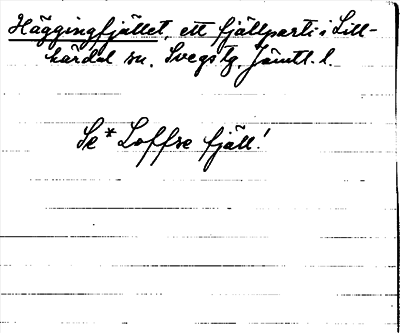 Häggingfjället, ett fjällparti i Lill-
härdal sn. Svegs tg. Jämtl. l.
Se * Loffse fjäll!